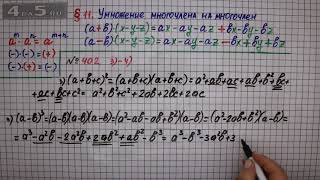 § 11. Умножение многочлена на многочлен
aᵐ·aⁿ = aᵐ⁺ⁿ
(a+b)(x-y-z)=ax-ay-az+bx-by-bz
(-)·(-) = (+)
(a-b)(x-y-z)=ax-ay-az-bx+by+bz
(-)·(+) = (-)
№402. 3)-4)
3) (a+b+c)²=(a+b+c)(a+b+c)=a²+ab+ac+ab+b²+
+bc+ac+bc+c²=a²+b²+c²+2ab+2bc+2ac
4) (a-b)³=(a-b)(a-b)(a-b)=(a²-ab-ab+b²)(a-b)=(a²-2ab+b²)(a-b)=
=a³-a²b-2a²b+2ab²+ab²-b³=a³-b³-3a²b+3